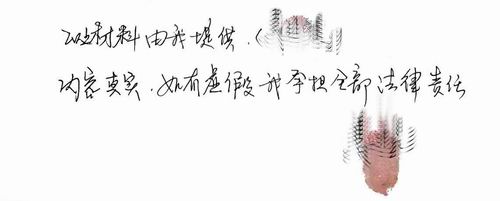 以上材料由我提供.(
内容真实.如有虚假我承担全部法律责任